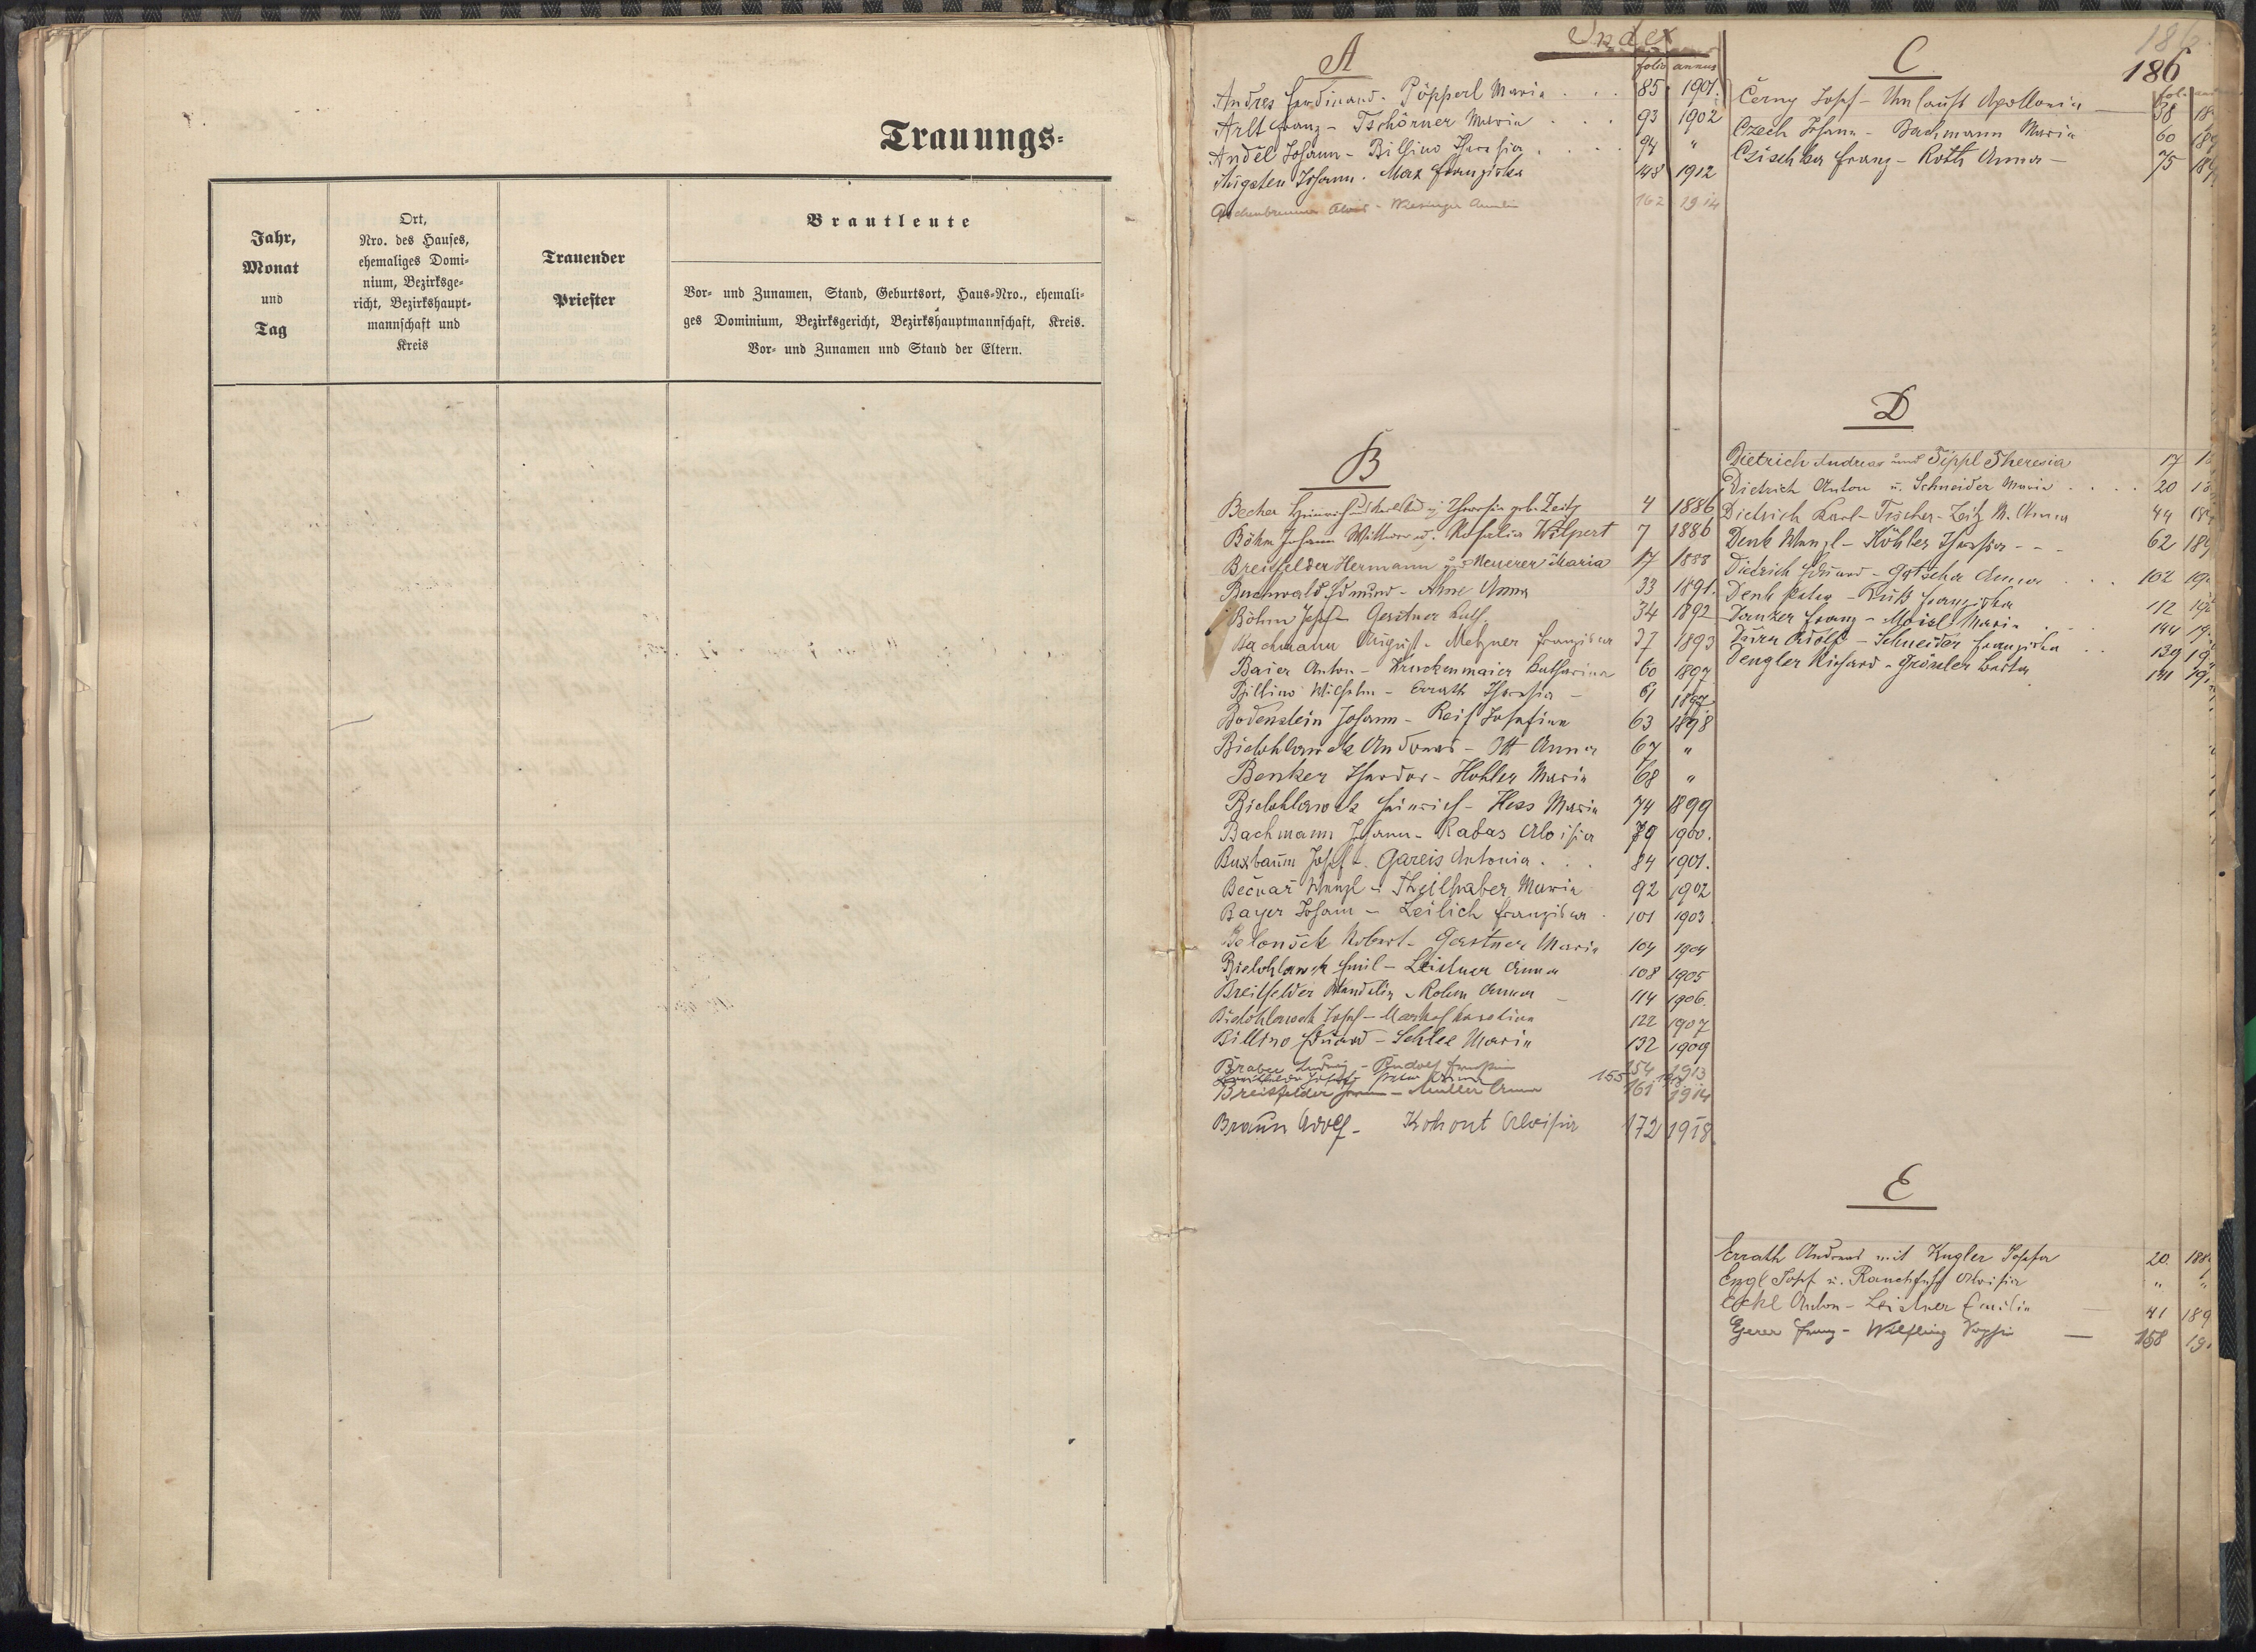 Trauungs-
Jahr,
Monat
und
Tag
Ort,
Nro. des Hauses,
ehemaliges Domi-
nium, Bezirksge-
richt, Bezirkshaupt-
mannschaft und
Kreis
Trauender
Priester
Brautleute
Vor- und Zunamen, Stand, Geburtsort, Haus-Nro., ehemali-
ges Dominium, Bezirksgericht, Bezirkshauptmannschaft, Kreis.
Vor- und Zunamen und Stand der Eltern.
Index
186
A
folio annus
Andres Ferdinand - Pöpperl Maria . . . 85 1901.
Arlt Franz - Tschörner Maria . . . 93 1902
Anděl Johann - Billino Theresia . . . 94 "
Augsten Johann - Max Franziska 148 1912
Aschenbrenner Alois - Amalia 162 1914
B
Becher Heinrich Theresia geb. Zeitz 4 1886
Böhm Johann Wittwer u. Rosalia Wilpert 7 1886
Breitfelder Hermann u. Meuerer Maria 17 1888
Buschwald Edmund - Ahne Anna 33 1891.
Böhm Josef - Gerstner Kath. 34 1892
Bachmann August - Metzner Franziska 37 1893
Baier Anton - Kruckenmaier Katharina 60 1897
Billino Wilhelm - Errath Theresia - 61 1897
Bodenstein Johann - Reif Josefine 63 1898
Bielohlawek Andreas - Ott Anna 67 "
Benker Theodor - Hohler Maria 68 "
Bielohlawek Heinrich - Hess Maria 74 1899
Bachmann Johann - Rabas Aloisia 79 1900.
Buxbaum Josef - Gareis Antonia . . . 84 1901.
Bečvař Wenzl - Theilhaber Maria 92 1902
Bayer Johann - Leilich Franziska . 101 1903.
Robert - Gerstner Maria 104 1904
Bielohlawek Emil - Leistner Anna 108 1905
Breitfelder Wendelin - Rohm Anna - 114 1906.
Bielohlawek Josef - Karolina 122 1907
Billino Eduard - Schlee Maria 132 1909
Braber Ludwig - Rudolf 154 1913
155
Breitfelder - Müller Anna 161 1914
Braun Adolf - Kohout Aloisia 172 1918.
C
Černy Josef - Umlauft Apollonia — 38 18
Czech Johann - Bachmann Maria 60 189
Czischka Franz - Roth Anna — 75 189
D
Dietrich Andreas und Tippl Theresia 17 18
Dietrich Anton u. Schneider Maria . . . . 20 18
Dietrich Karl - Tischer - Zeitz M. Anna 44 18
Denk Wenzl - Köhler Theresia - - - 62 189
Dietrich Eduard - Götscher Anna . . . 102 190
Denk Peter - Ruß Franziska 112 190
Franz - Meisl Maria . . 144 19
Adolf - Schneider Franziska . . 139 19
Dengler Richard - Grössler Berta 141 19
E
Errath Andreas mit Kugler Josefa 20. 188
Engl Josef u. Rauchfuß Aloisia " "
Eckl Anton - Leistner Emilie — 41 189
Egerer Franz - Wilfling — 158 19